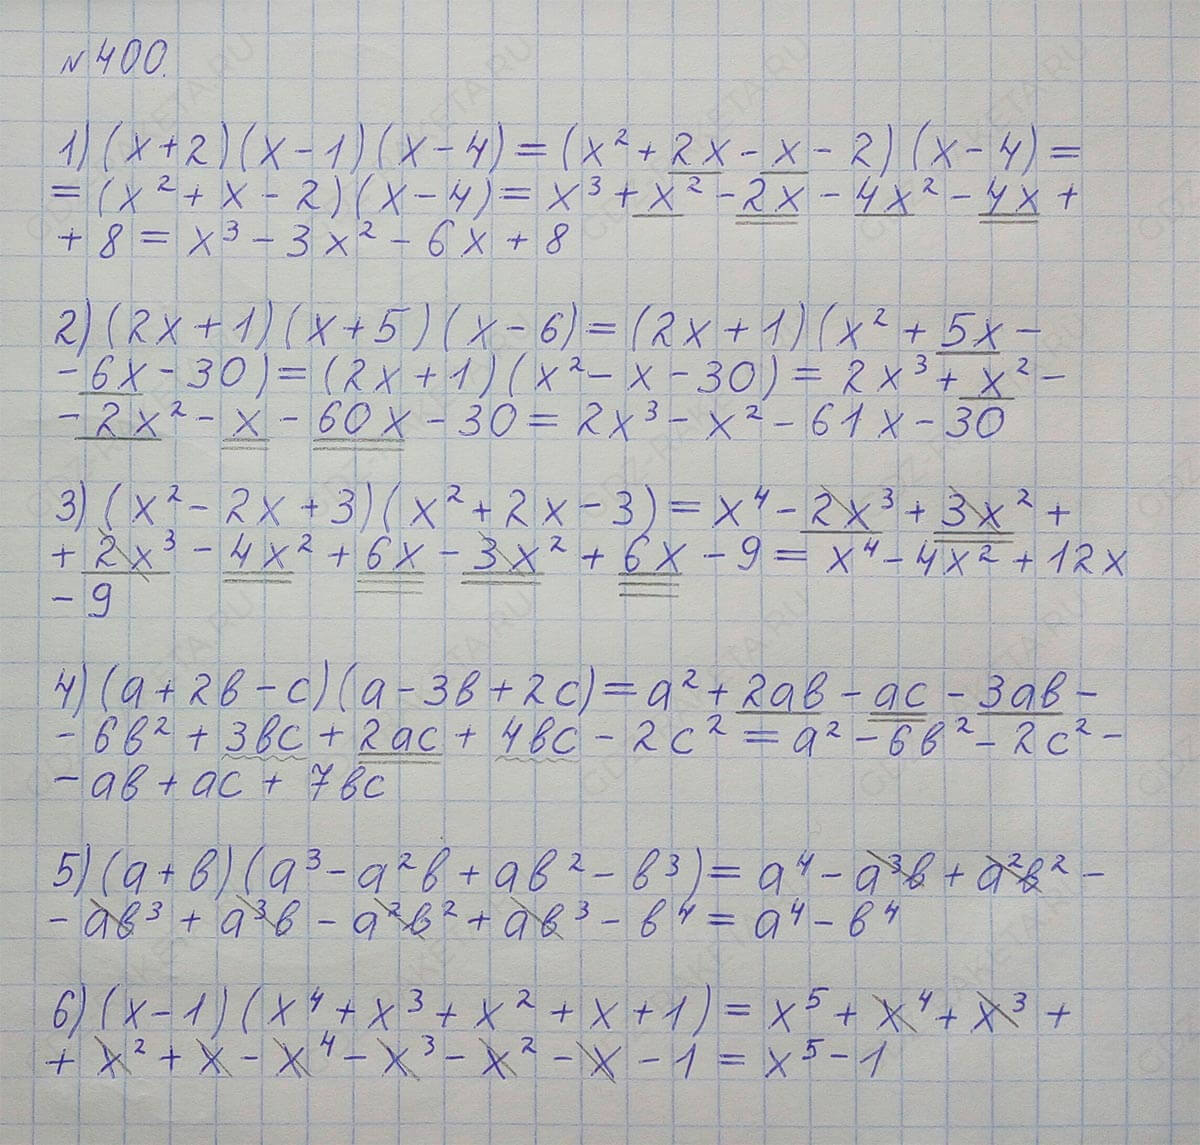 №400.
1) (x+2)(x-1)(x-4)=(x²+2x-x-2)(x-4)=
=(x²+x-2)(x-4)=x³+x²-2x-4x²-4x+
+8=x³-3x²-6x+8
2) (2x+1)(x+5)(x-6)=(2x+1)(x²+5x-
-6x-30)=(2x+1)(x²-x-30)=2x³+x²-
-2x²-x-60x-30=2x³-x²-61x-30
3) (x²-2x+3)(x²+2x-3)=x⁴-2x³+3x²+
+2x³-4x²+6x-3x²+6x-9=x⁴-4x²+12x
-9
4) (a+2b-c)(a-3b+2c)=a²+2ab-ac-3ab-
-6b²+3bc+2ac+4bc-2c²=a²-6b²-2c²-
-ab+ac+7bc
5) (a+b)(a³-a²b+ab²-b³)=a⁴-a³b+a²b²-
-ab³+a³b-a²b²+ab³-b⁴=a⁴-b⁴
6) (x-1)(x⁴+x³+x²+x+1)=x⁵+x⁴+x³+
+x²+x-x⁴-x³-x²-x-1=x⁵-1
GDZ-RAKETA.RU